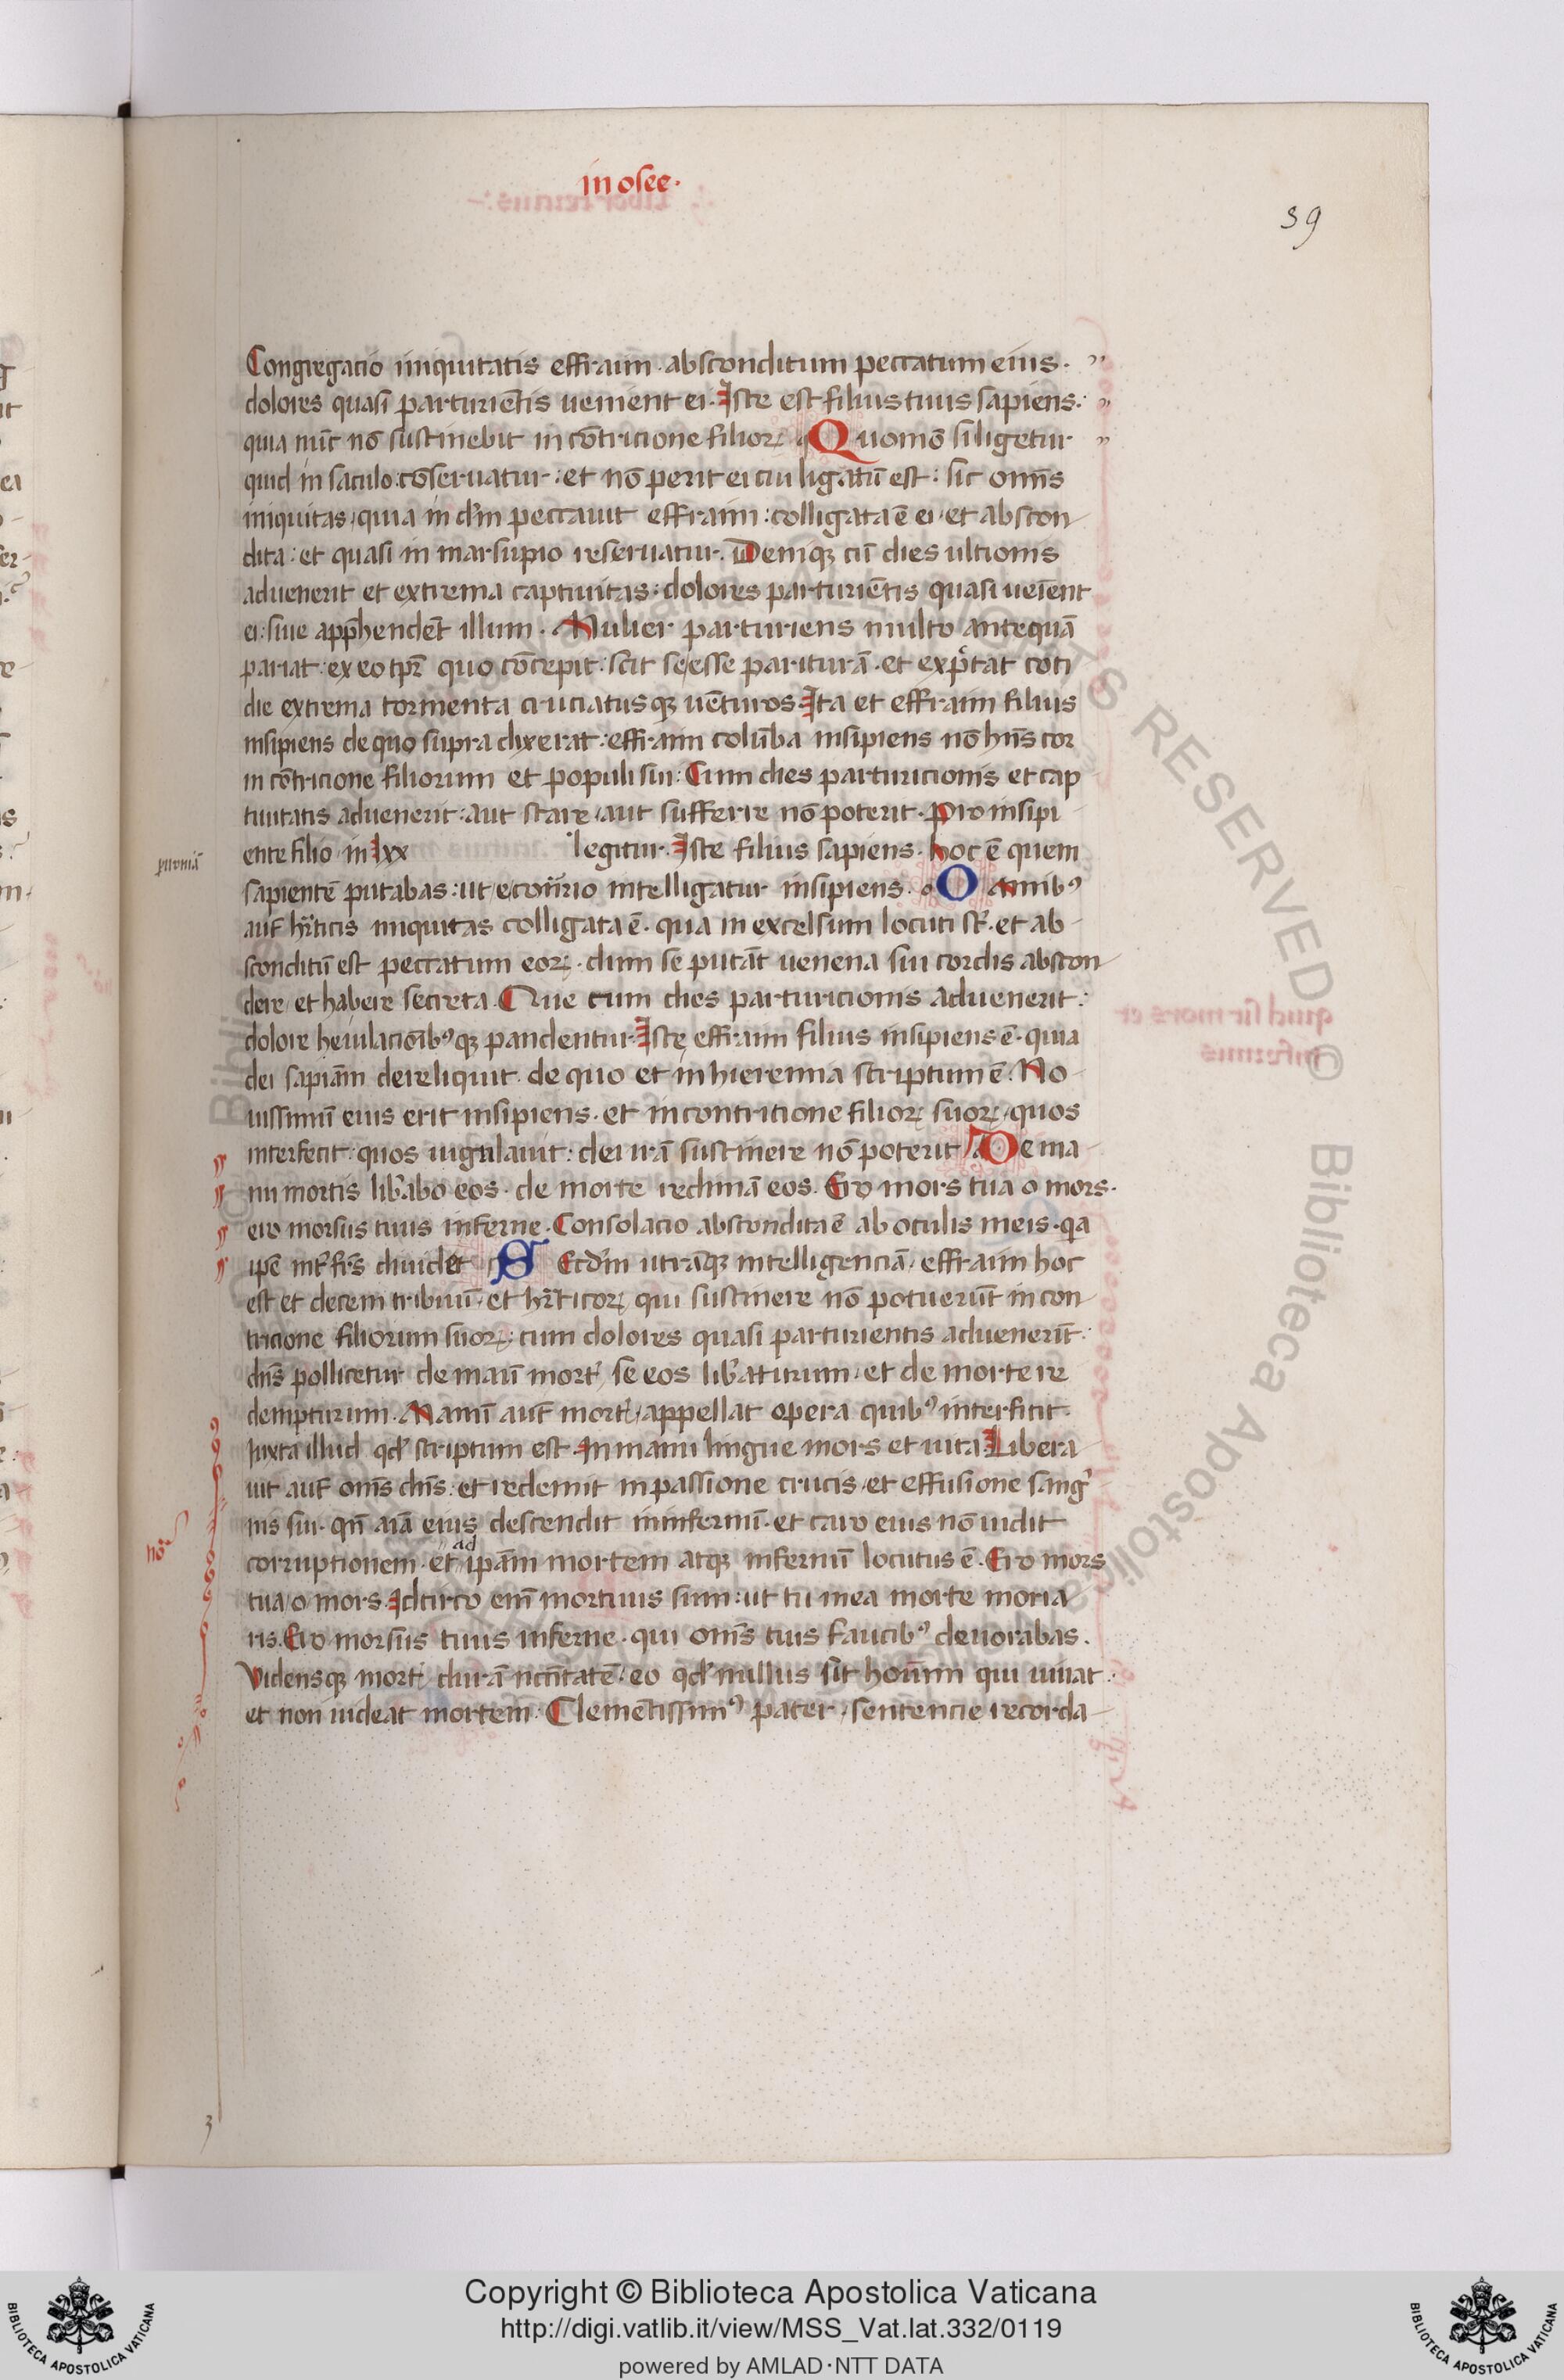 in osee.
39
Congregacio iniquitatis effraim · absconditum peccatum eius ·
dolores quasi parturiẽtis uenient ei · Iste est filius tuus sapiens ·
quia nũc nõ sustinebit in cõtricione filioꝝ Quomõ si ligetur
quid in saculo cõseruatur : et nõ perit ei cui ligatũ est : sic omĩs
iniquitas · quia in dm̃ peccauit effraim : colligata ẽ ei · et abscon
dita : et quasi in marsupio reseruatur. Deniqꝫ cũ dies ultionis
aduenerit et extrema captiuitas : dolores parturiẽtis quasi ueĩent
ei : siue app̃hendẽt illum · Mulier parturiens multo antequã
pariat : ex eo tp̃r quo cõcepit : scit se esse pariturã · et exp̃ctat coti
die extrema tormenta cruciatusqꝫ uẽturos · Ita et effraim filius
insipiens de quo supra dixerat : effraim colũba insipiens nõ hñs cor
in cõtricione filiorum et populi sui : Cum dies parturicionis et cap
tiuitatis aduenerit : aut stare · aut sufferre nõ poterit · Pro insipi
ente filio · in lxx legitur · Iste filius sapiens · hoc ẽ quem
sapientẽ putabas : ut econ̉rio intelligatur insipiens · O Mnibꝰ
aut̃ hr̃ticis iniquitas colligata ẽ · quia in excelsum locuti st̃ · et ab
sconditũ est peccatum eoꝝ · dum se putãt uenena sui cordis abscon
dere · et habere secreta · Que cum dies parturicionis aduenerit :
dolore heiulaciõibꝰqꝫ pandentur · Iste effraim filius insipiens ẽ · quia
dei sapiãm dereliquit · de quo et in hieremia scriptum ẽ · No
uissimũ eius erit insipiens · et in contritione filioꝝ suoꝝ · quos
interfecit · quos iugulauit : dei irã sustinere nõ poterit De ma
nu mortis lib̃abo eos · de morte redimã eos · Ero mors tua o mors ·
ero morsus tuus inferne · Consolacio abscondita ẽ ab oculis meis · qa
ip̃e int̉ fr̃s diuidet S Ecdm̃ utrãqꝫ intelligenciã · effraim hoc
est et decem tribuũ · et hr̃ticoꝝ qui sustinere nõ potuerũt in con
tricione filiorum suoꝝ : cum dolores quasi parturientis aduenerĩt ·
dñs pollicetur de manũ mort̉ se eos lib̃aturum · et de morte re
dempturum · Manũ aut̃ mort̉ · appellat opera quibꝰ interficit ·
Iuxta illud qđ scriptum est · In manu lingue mors et uita · Libera
uit aut̃ omĩs dñs · et redemit in passione crucis · et effusione sang̉
nis sui · qñ aĩa eius descendit in infernũ · et caro eius nõ uidit
corruptionem · et ad ip̃am mortem atqꝫ infernũ locutus ẽ · Ero mors
tua · o mors · Idcirco em̃ mortuus sum : ut tu mea morte moria
ris · Ero morsus tuus inferne · qui omĩs tuis faucibꝰ deuorabas ·
Vidensqꝫ mort̉ durã nc̃itatẽ · eo qđ nullus sit homm̃ qui uiuat ·
et non uideat mortem · Clemẽtissimꝰ pater · sentencie recorda
no͛
Copyright © Biblioteca Apostolica Vaticana
http://digi.vatlib.it/view/MSS_Vat.lat.332/0119
powered by AMLAD·NTT DATA
BIBLIOTECA APOSTOLICA VATICANA
BIBLIOTECA APOSTOLICA VATICANA